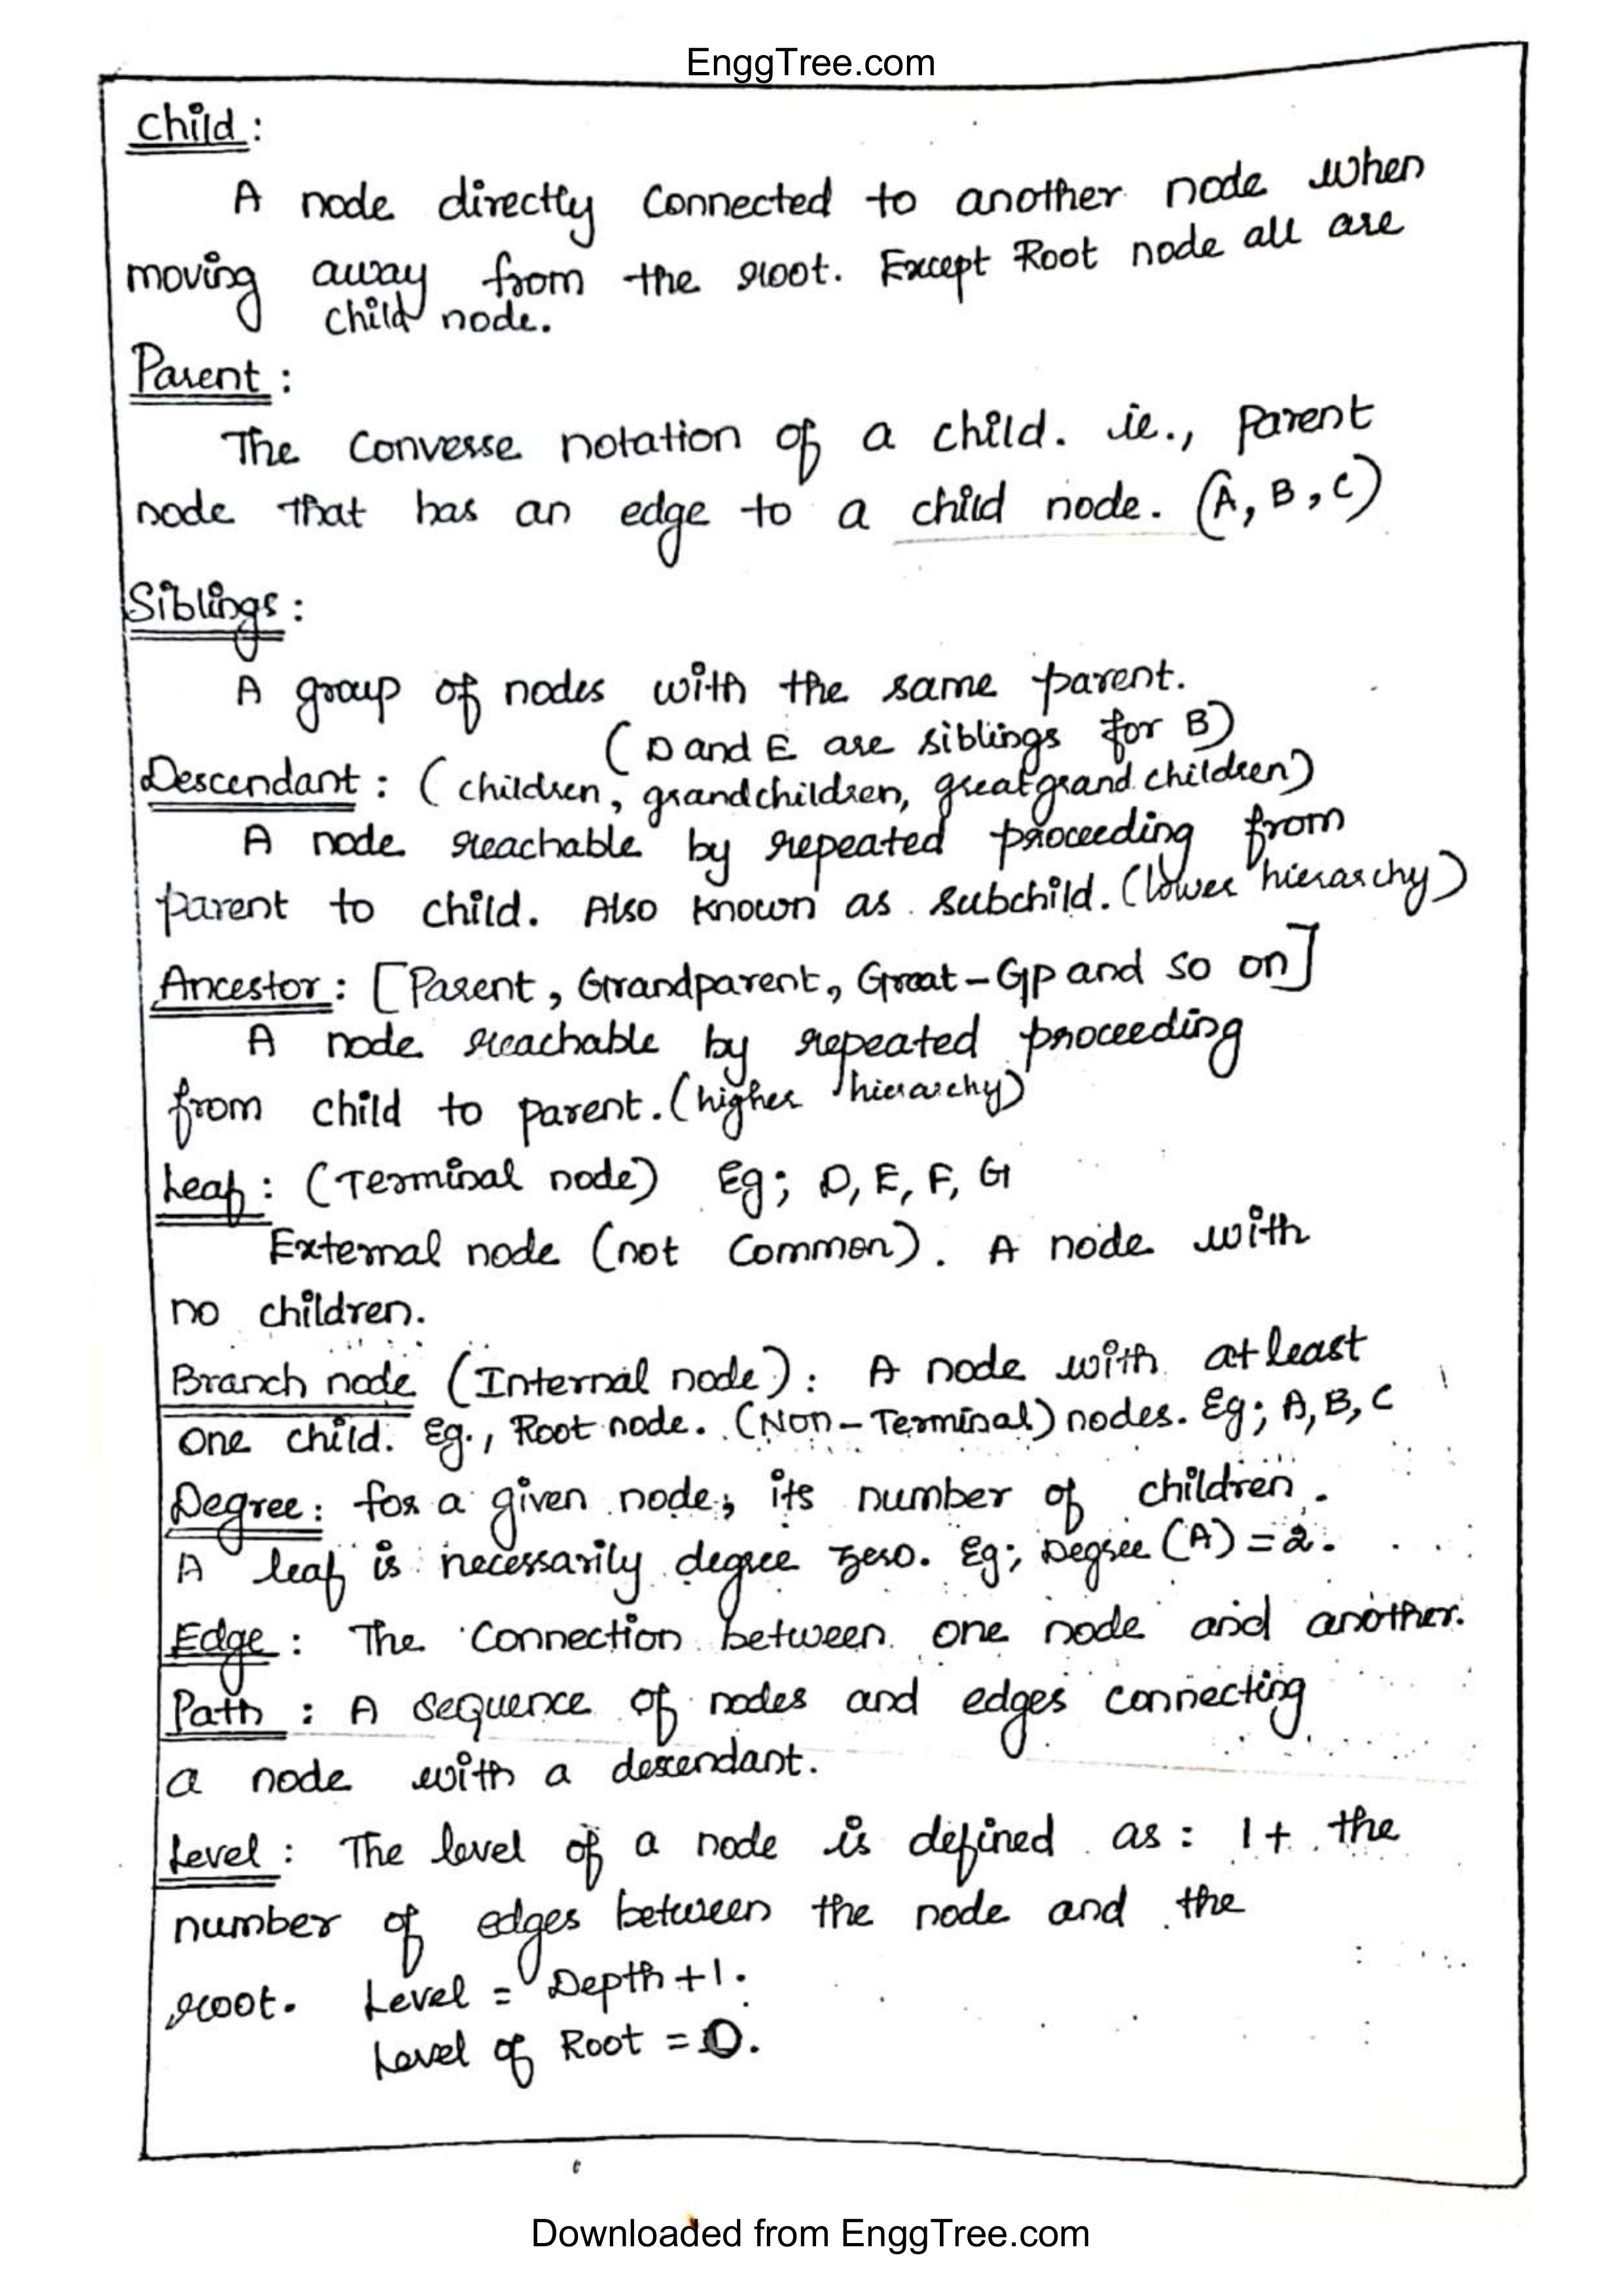 EnggTree.com
Child:
A node directly connected to another node when
moving away from the root. Except Root node all are
child node.
Parent:
The Converse notation of a child. ie., parent
node that has an edge to a child node. (A, B, C)
Siblings:
A group of nodes with the same parent.
(D and E are siblings for B)
Descendant: (children, grandchildren, great grand children)
A node reachable by repeated proceeding from
parent to child. Also known as subchild. (lower hierarchy)
Ancestor: [Parent, Grandparent, Great-GP and so on]
A node reachable by repeated proceeding
from child to parent. (higher hierarchy)
Leaf: (Terminal node) Eg; D, E, F, G
External node (not common). A node with
no children.
Branch node (Internal node): A node with atleast
one child. Eg., Root node. (Non-Terminal) nodes. Eg; A, B, C
Degree: for a given node; its number of children.
A leaf is necessarily degree zero. Eg; Degree (A) = 2.
Edge: The connection between one node and another.
Path: A sequence of nodes and edges connecting
a node with a descendant.
Level: The level of a node is defined as: 1+ the
number of edges between the node and the
root. Level = Depth+1.
Level of Root = 0.
Downloaded from EnggTree.com